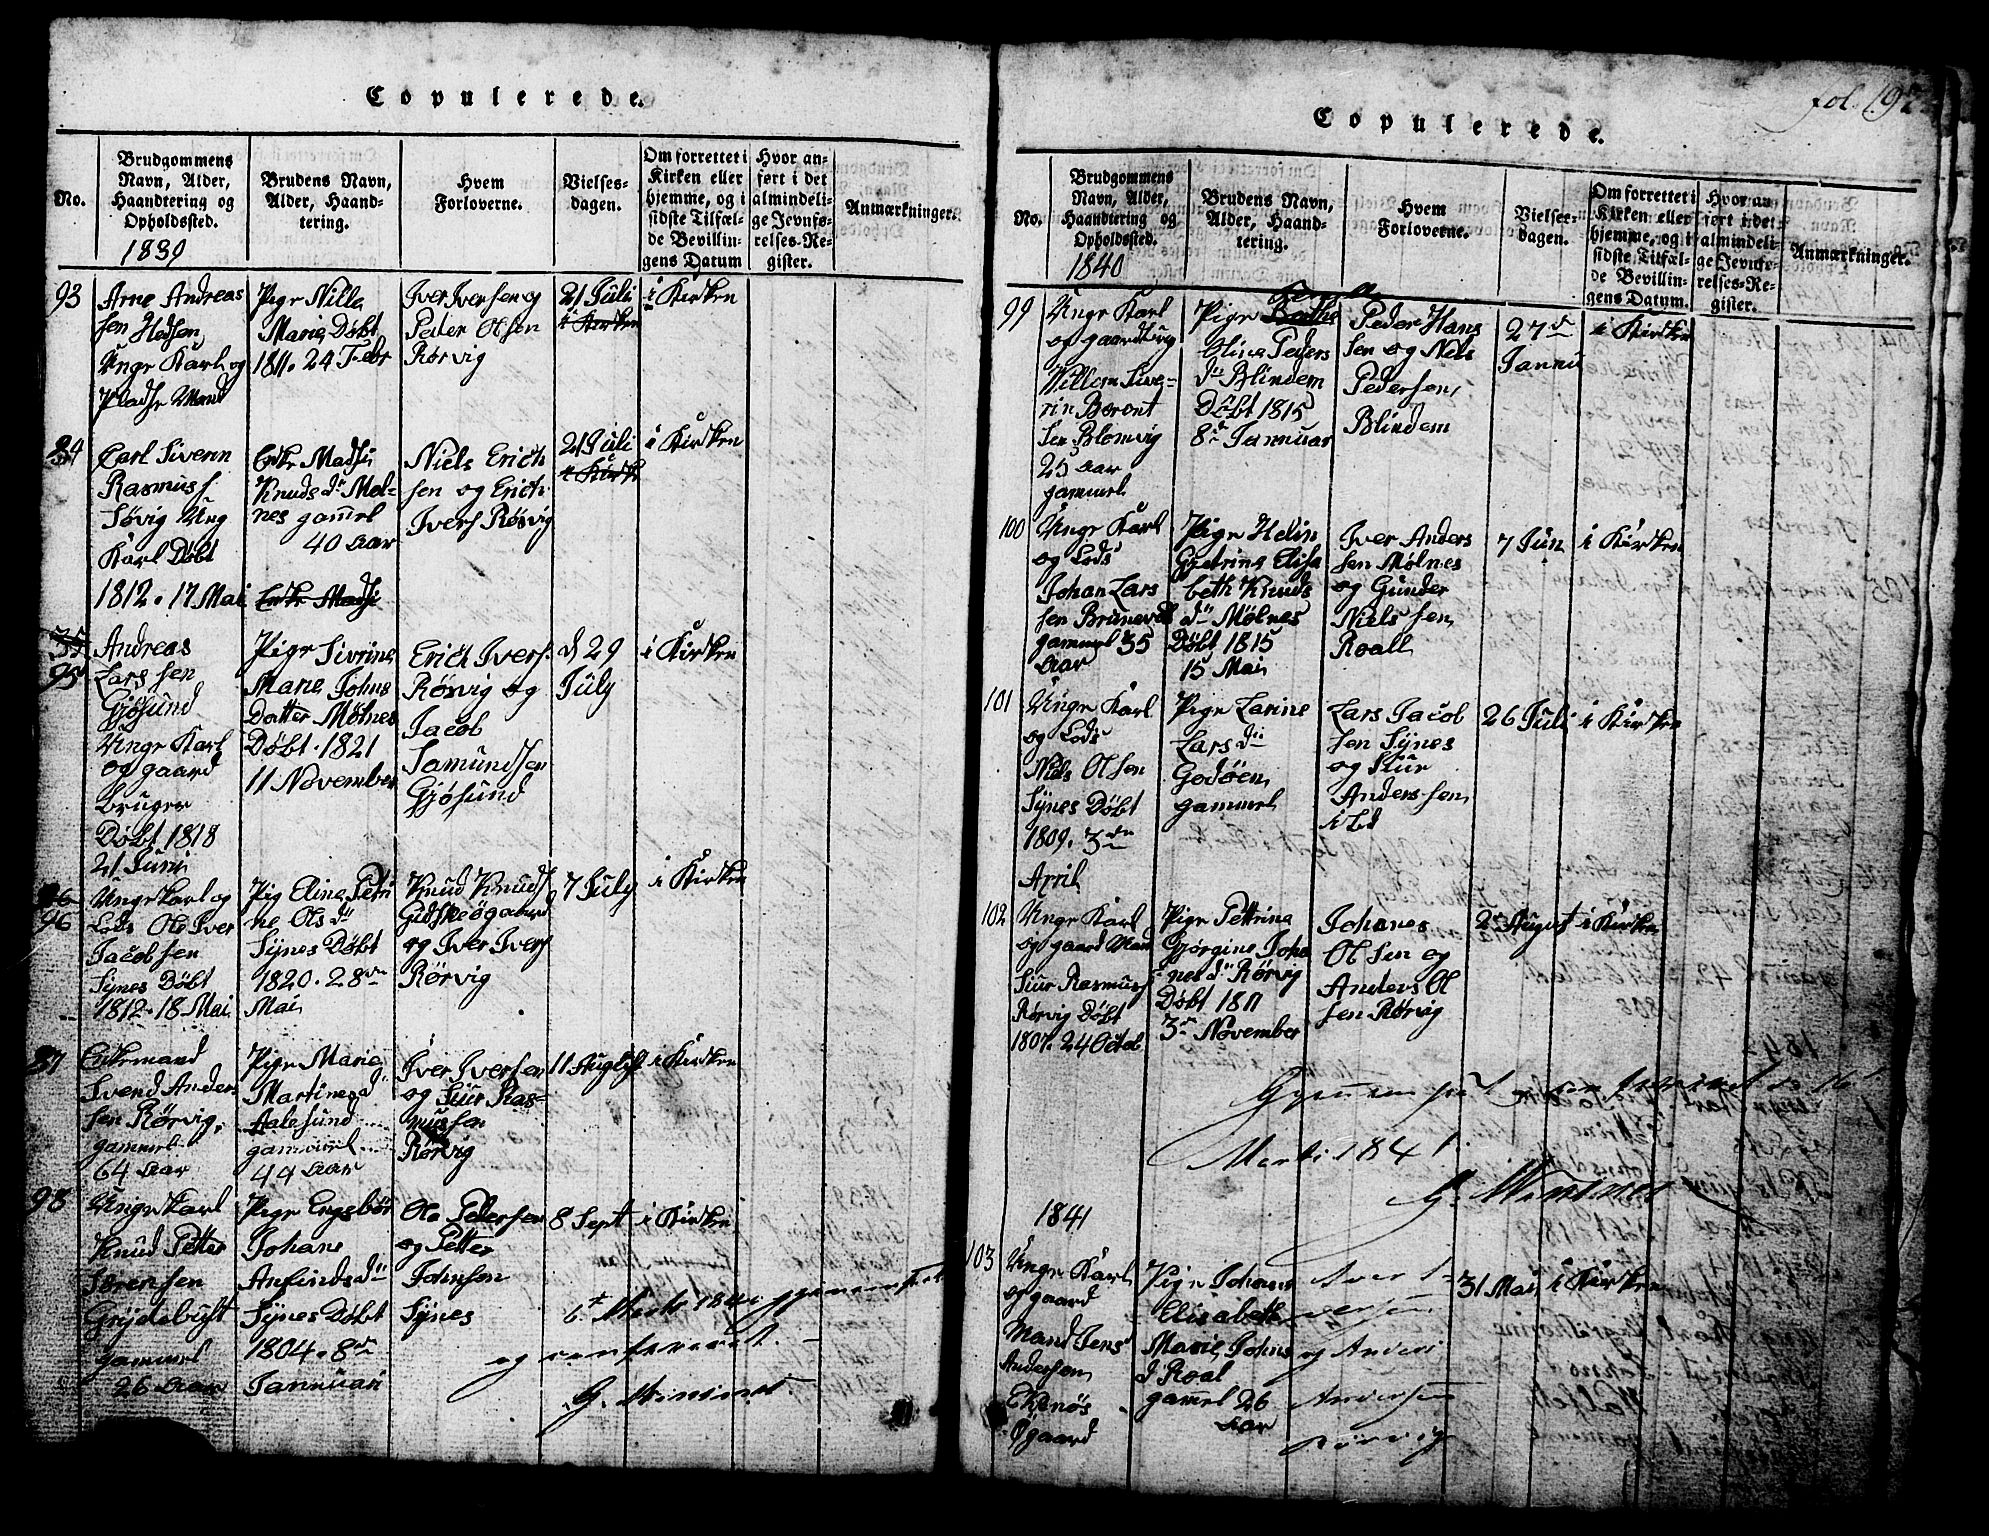 Copulerede.
No.
Brudgommens
Navn, Alder,
Haandtering og
Opholdssted.
1839
Brudens Navn,
Alder, Haand-
tering.
Hvem
Forloverne.
Vielses-
dagen.
Om forrettet i
Kirken eller
hjemme, og i
sidste Tilfæl-
de Bevillin-
gens Datum
Hvor an-
ført i det
almindeli-
ge Jevnfø-
relses-Re-
gister.
Anmærkninger.
93
Arne Andreas
sen Hessen
Unge Karl og
Pladse Mand
Pige Nille
Marie Døbt
1811. 24 Febr
Iver Iversen og
Peder Olsen
Rørvig
21 Juli
i Kirken
i Kirken
94
Carl Sivern
Rasmuss
Søvig Ung
Karl Døbt
1812. 17 Mai
Enke Madsi
Knuds dr Møl-
nes gamel
40 Aar
Enke Madsi
Niels Erich
sen og Erich
Ivers Rørvig
21 Juli
i Kirke
i Kirken
35
95
Andreas
Larssen
Gjøsund
Unge Karl
og gaard
bruger
Døbt 1818
21 Juni
Pige Sivrine
Marie Johns
Datter Mølnes
Døbt. 1821
11 November
Erich Ivers.
Rørvig og
Jacob
Samundsen
Gjøsund
d 29
July
i Kirken
96
96
Unge Karl og
Lods Ole Iver
Jacobsen
Synes Døbt
1812. 18 Mai
Pig Eline Petri
ne Ols dr
Synes Døbt
1820. 28de
Mai
Knud Knuds
Gidskeøgaard
og Iver Ivers
Rørvig
7 July
i Kirken
97
Enkemand
Svend Anders
sen Rørvig,
gammel
64 Aar
Pige Marie
Martines d
Aalesund
gammel
44 Aar
Iver Iversen
og Siur Ras-
mussen
Rørvig
11 August
i Kirken
98
Unge Karl
Knud Petter
Sørensen
Grytebust
gammel
26 Aar
Pige Engebor
Johane
Anfinds dr
Synes Døbt
1804. 8de
Jannuari
Ole Pedersen
og Petter
Johnsen
Synes
8 Sept
i Kirken
6t Marts 1840 gjenemseet
og confereret.
Copulerede.
No.
Brudgommens
Navn, Alder,
Haandtering og
Opholdssted.
1840
Brudens Navn,
Alder, Haand-
tering.
Hvem
Forloverne.
Vielses-
dagen.
Om forrettet i
Kirken eller
hjemme, og i
sidste Tilfæl-
de Bevillin-
gens Datum.
Hvor an-
ført i det
almindeli-
ge Jevnfø-
relses-Re-
gister.
Anmærkninger.
99
Unge Karl
og gaardbrug
Willem Sive-
rin Berent
sen Blomvig
25 Aar
gammel
Pige
Oline Peders
dr Blindem
Døbt 1815
8de Jannuar
Peder Hans
sen og Niels
Pedersen,
Blindem
27de
Jannu
i Kirken
100
Unge Karl
og Lods
Johan Lars
sen
gammel 35
Aar
Pige Helin
Elisa
beth Knuds
dr Mølnes
Døbt 1815
15 Mai
Iver Anders
sen Mølnes
og Gunder
Nielssen,
Roall
7 Jun
i Kirken
101
Unge Karl
og Lods
Niels Olsen
Synes Døbt
1809. 3de
April
Pige Larine
Lars dr
Godøen,
gammel
Lars Jacob
sen Synes
og Siur
Anderssen,
ibd
26 Juli
i Kirken
102
Unge Karl
og gaard Man
Siur Rasmuss
Rørvig Døbt
1807. 24 Octob
Pige Pettrina
Gjørgine Joha
nes dr Rørvig
Døbt 1811
3de November
Johanes
Olsen og
Anders Ol
sen Rørvig
2 August
i Kirken
Marts 1841.
1841
103
Unge Karl
og gaard
Mand Jens
Andersen,
Øgaard
Pige Johane
Elisabeth
Marie Johns
d Roal
gamel 26
Aar
Iver I-
versen
og Anders
Andersen
Rørvig
31 Mai
i Kirken